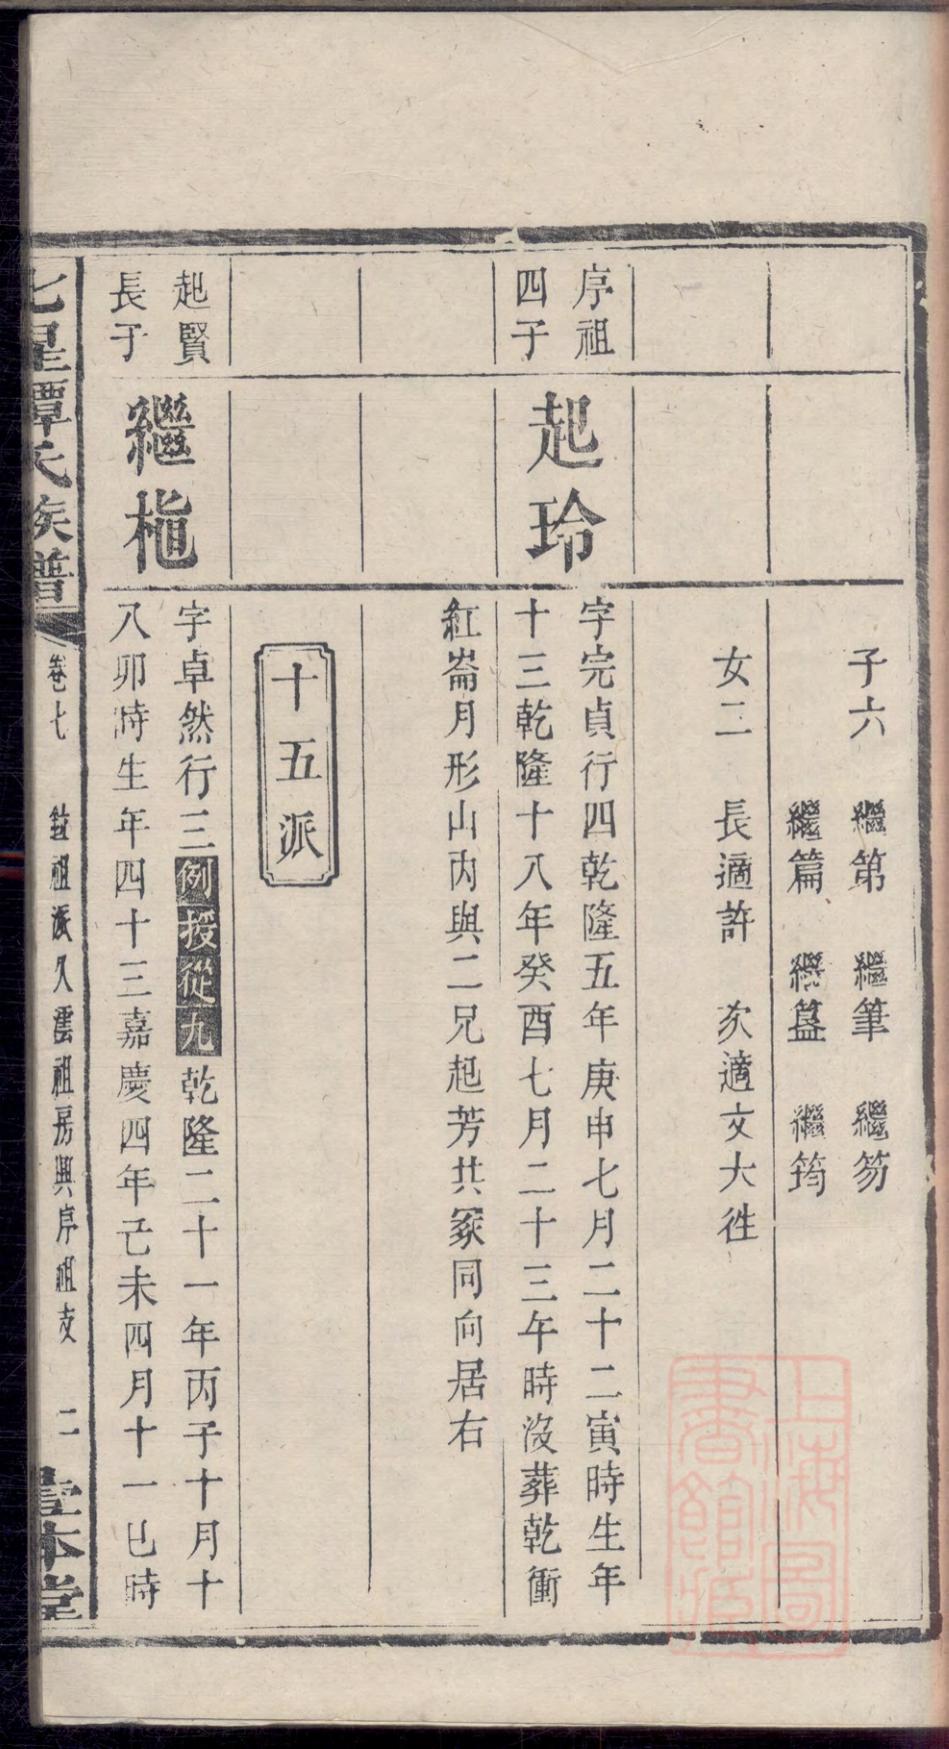 子六 繼第 繼筆 繼笏
繼篇 繼簋 繼筠
女二 長適許 次適文大徃
序祖
四子
起玲
字完貞行四乾隆五年庚申七月二十二寅時生年
十三乾隆十八年癸酉七月二十三午時沒葬乾衝
紅崙月形山丙與二兄起芳共冢同向居右
十五派
起賢
長子
繼梔
字卓然行三例授從九乾隆二十一年丙子十月十
八卯時生年四十三嘉慶四年己未四月十一巳時
七星譚氏族譜
卷七 祖派久雲祖房興序祖支 二
本堂
上海圖書館藏